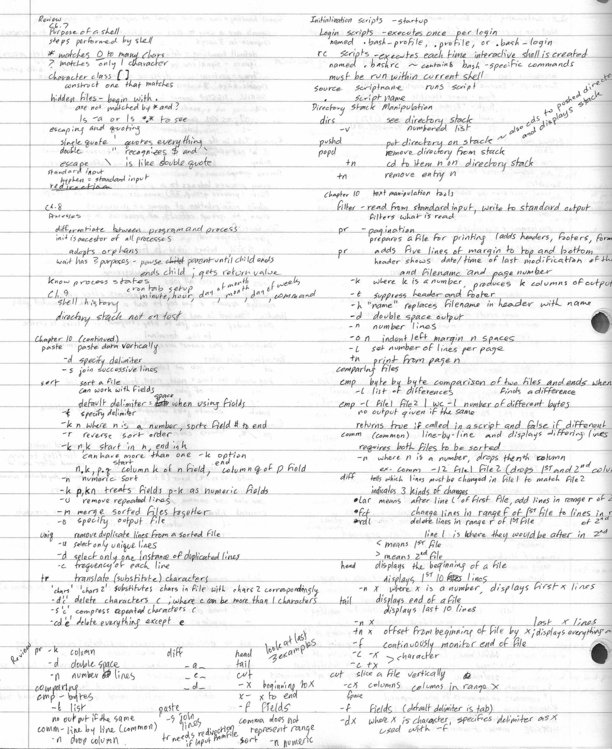 Review
Ch. 7
Purpose of a shell
steps performed by shell
* matches 0 to many chars
? matches only 1 character
character class []
construct one that matches
hidden files - begin with .
are not matched by * and ?
ls -a or ls .* to see
escaping and quoting
single quote ' quotes everything
double " recognizes $ and \
escape \ is like double quote
standard input
hyphen = standard input
redirection
Ch. 8
Processes
differentiate between program and process
init is ancestor of all processes
adopts orphans
wait has 2 purposes - pause child parent until child ends
child ends; gets return value
know process states
crontab setup
Ch. 9 minute, hour, day of month, month, day of weeks, command
shell history
directory stack not on test
Chapter 10 (continued)
paste paste data vertically
-d specify delimiter
-s join successive lines
sort sort a file
can work with fields
default delimiter = space when using fields
-t specify delimiter
-k n where n is a number, sorts field # to end
-r reverse sort order
-k n,k start in n, end in k
can have more than one -k option
start end
n.k, p.q column k of n field, column q of p field
-n numeric sort
-k p,kn treats fields p-k as numeric fields
-u remove repeated lines
-m merge sorted files together
-o specify output file
uniq - remove duplicate lines from a sorted file
-u select only unique lines
-d select only one instance of duplicated lines
-c frequency of each line
tr translate (substitute) characters
'chars' 'chars2' substitutes chars in file with chars2 correspondingly
-d 'c' delete characters c, where c can be more than 1 characters
-s 'c' compress repeated characters c
-cd 'e' delete everything except e
Initialization scripts - startup
Login scripts - executes once per login
named .bash-profile, .profile, or .bash-login
rc scripts - executes each time interactive shell is created
named .bashrc ~ contains bash-specific commands
must be run within current shell
source scriptname runs script
. scriptname
Directory Stack Manipulation
dirs see directory stack
-v numbered list
pushd put directory on stack ~ also cds to pushed directory and displays stack
popd remove directory from stack
+n cd to item n on directory stack
+n remove entry n
Chapter 10 text manipulation tools
filter - read from standard input, write to standard output
filters what is read
pr - pagination
prepares a file for printing (adds headers, footers, form
pr adds five lines of margin to top and bottom
header shows date/time of last modification of the
and filename and page number
-k where k is a number, produces k columns of output
-t suppress header and footer
-h "name" replaces filename in header with name
-d double space output
-n number lines
-o n indent left margin n spaces
-l set number of lines per page
+n print from page n
comparing files
cmp byte by byte comparison of two files and ends when
-l list of differences finds a difference
cmp -l file1 file2 | wc -l number of different bytes
no output given if the same
returns true if called in a script and false if different
comm (common) line-by-line and displays differing lines
requires both files to be sorted
-n where n is a number, drops the nth column
ex: comm -12 file1 file2 (drops 1st and 2nd colu
diff tells which lines must be changed in file1 to match file2
indicates 3 kinds of changes
•lar means after line l of first file, add lines in range r of 2
•fct change lines in range f of 1st file to lines in
•rdl delete lines in range r of 1st file of 2nd
line l is where they would be after in 2nd
< means 1st file
> means 2nd file
head displays the beginning of a file
displays 1st 10 lines
-n x where x is a number, displays first x lines
tail displays end of a file
displays last 10 lines
-n x last x lines
+n x offset from beginning of file by x; displays everything
-f continuously monitor end of file
-c -x > character
-c +x
cut slice a file vertically
-cx columns columns in range x
-f fields (default delimiter is tab)
-dx where x is character, specifies delimiter as x
used with -f
Review
pr -k column
-d double space
-n number of lines
comparing
cmp - bytes
-l list
no output if the same
comm - line by line (common)
-n drop column
diff
_a_
_c_
_d_
paste
-s join lines
tr needs redirection if input from file
head look at last 3 examples
tail
cut
x- x beginning to x
x- x to end
-f fields
comma does not
represent range
sort -n numeric